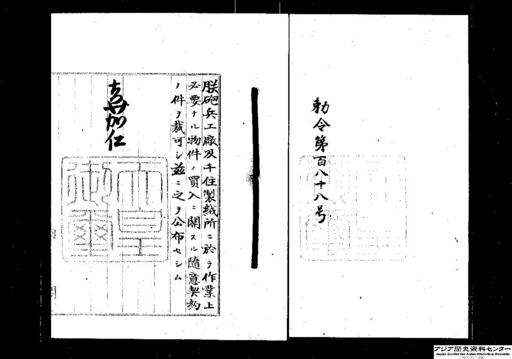 勅令第百八十八号
朕砲兵工廠及千住製絨所ニ於テ作業上
必要ナル物件ノ買入ニ関スル随意契約
ノ件ヲ裁可シ茲ニ之ヲ公布セシム
嘉仁
天皇
御璽
アジア歴史資料センター
Japan Center for Asian Historical Records